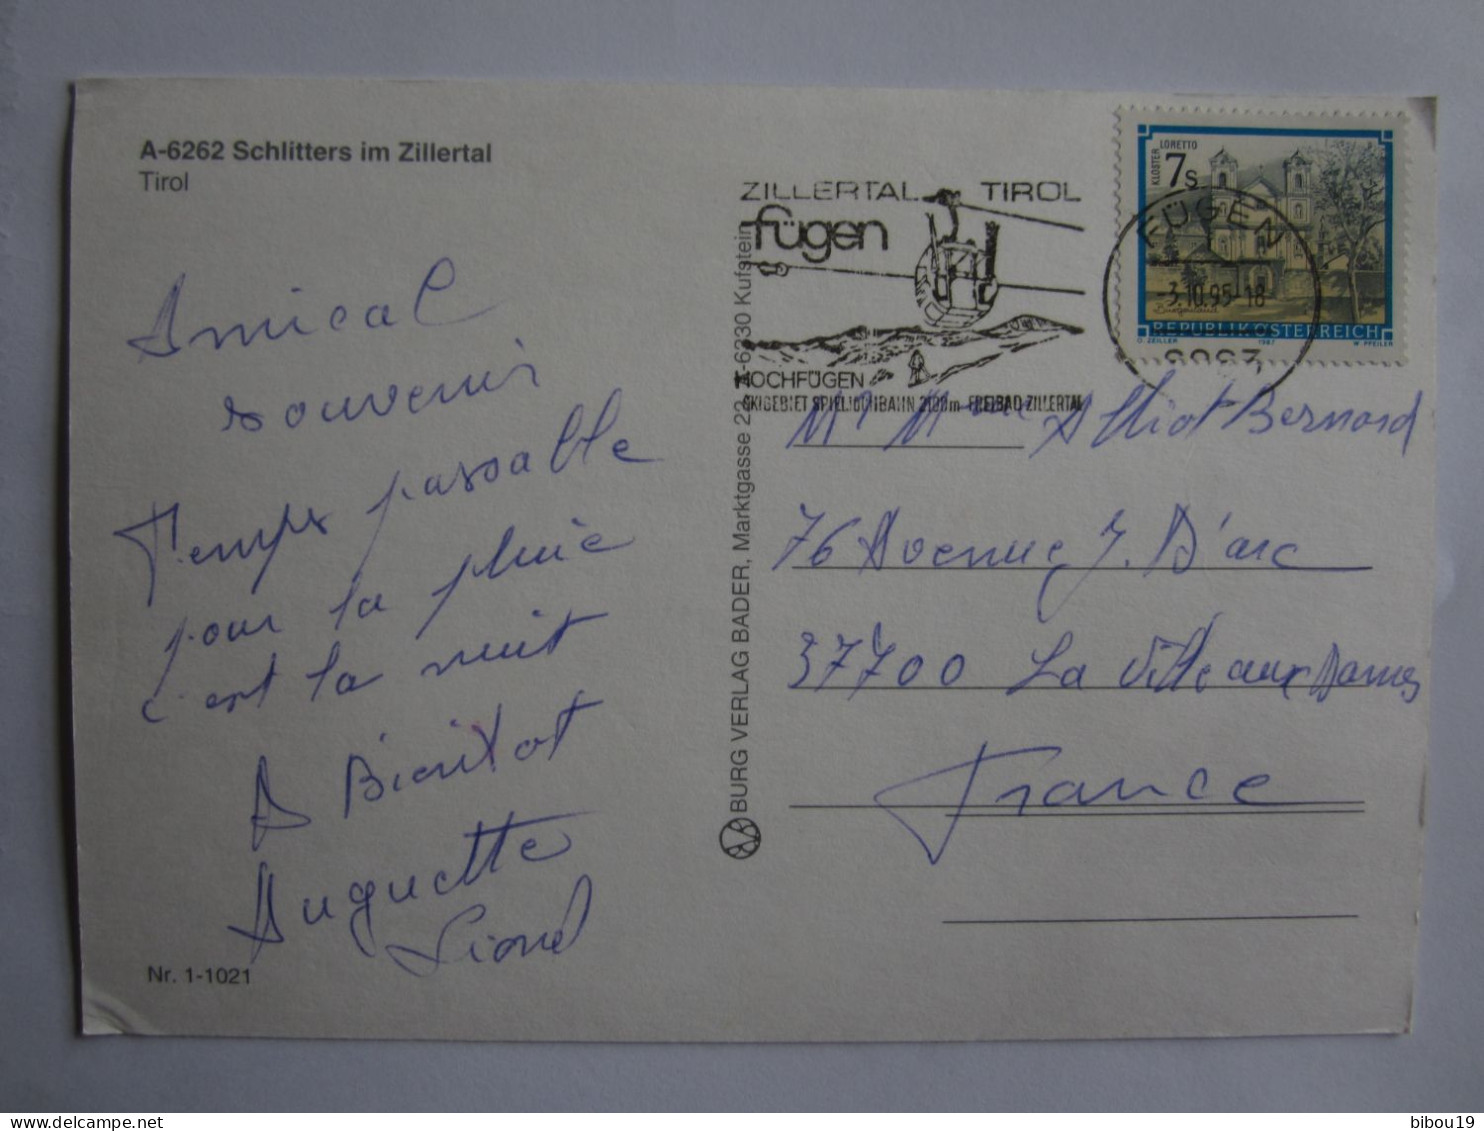 A-6262 Schlitters im Zillertal
Tirol
Amical
souvenir
Temps passable
pour la pluie
c'est la nuit
A Bientot
Huguette
Lionel
Nr. 1-1021
BURG VERLAG BADER, Marktgasse 22, A-6330 Kufstein
ZILLERTAL TIROL
fügen
HOCHFÜGEN
SKIGEBIET SPIELJOCHBAHN 2100m - FREIBAD ZILLERTAL
KLOSTER LORETTO
7s
Burgenland
REPUBLIK ÖSTERREICH
O. ZEILLER 1987 W. PFEILER
FÜGEN
-3.10.95-18
Mr Mme Alliot Bernard
76 Avenue J. D'arc
37700 La Ville aux Dames
France
bibou19